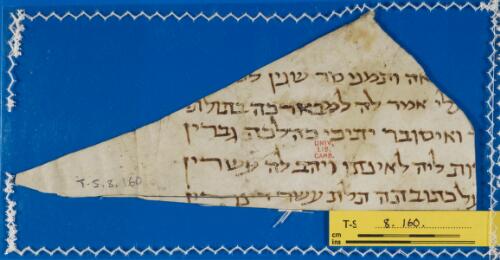 אה ותמני מר שנין
עלי אמר לה למבארכה בתולת
ואיסובר יתיכי כהלכת גברין
ות ליה לאינתו ויהב לה עשרין
על כתובתה תלת עשר
UNIV.
LIB.
CAMB.
T-S. 8. 160
T-S 8. 160.
cm
ins